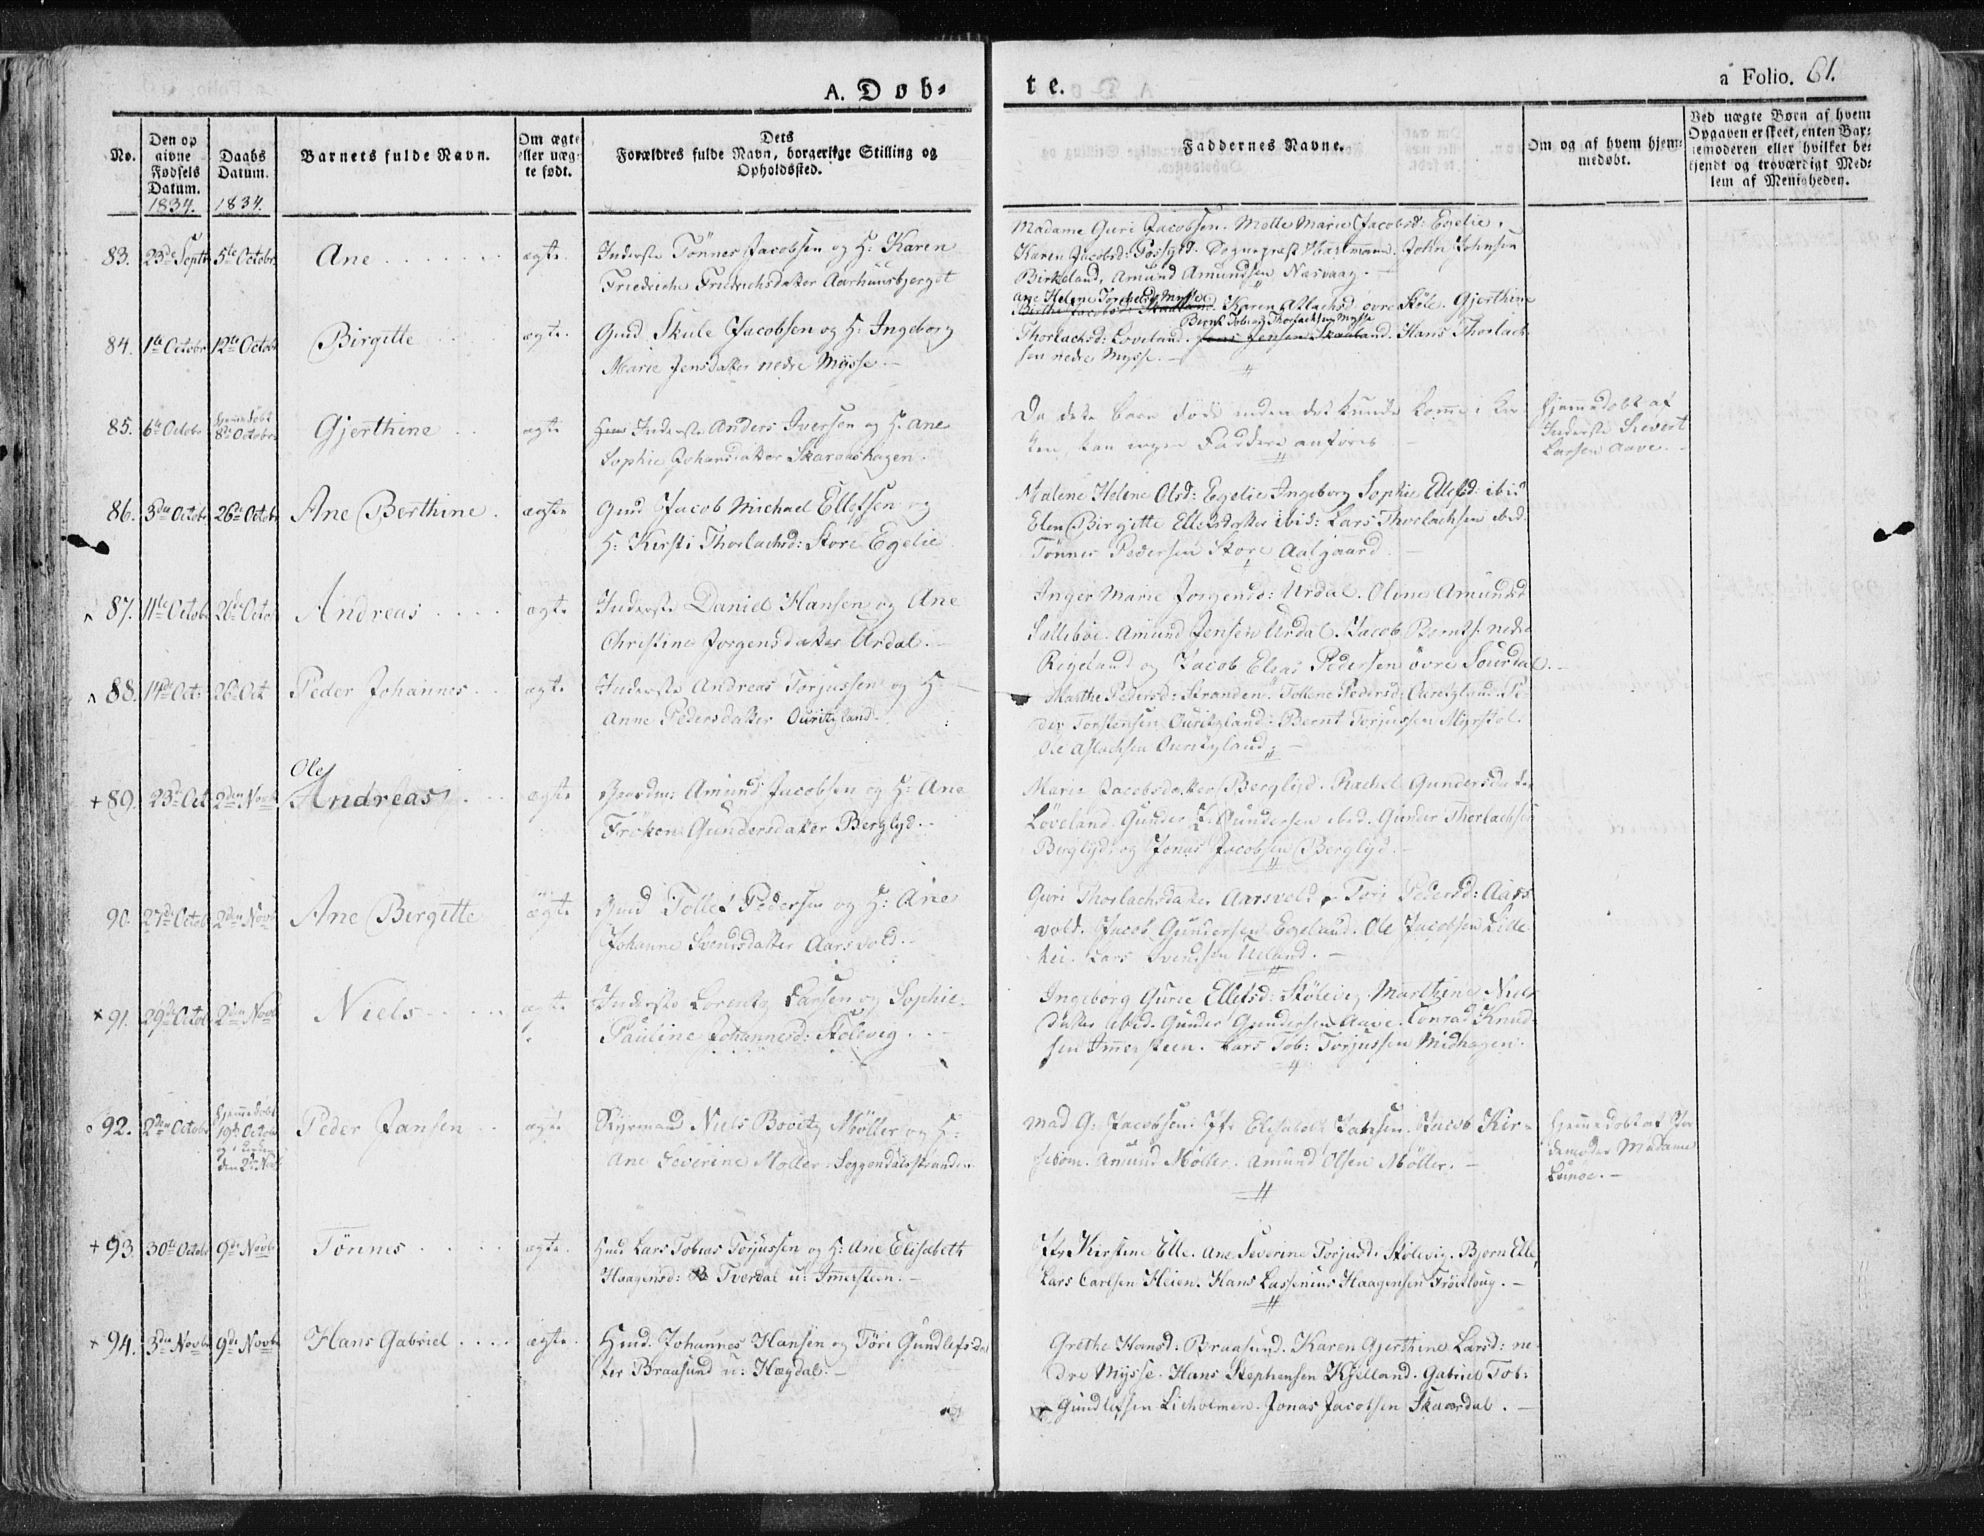 A. Døb-
te.
a Folio. 61.
No.
Den opgivne Fødsels Datum. 1834.
Daabs Datum. 1834.
Barnets fulde Navn.
Om ægte eller uægte født.
Dets Forældres fulde Navn, borgerlige Stilling og Opholdssted.
Faddernes Navne.
Om og af hvem hjemmedøbt.
Ved uægte Børn af hvem Opgaven er skeet, enten Barnemoderen eller hvilket bekjendt og troværdigt Medlem af Menigheden.
83. 23de Septb 5te Octobr Ane ægte
Inderste Tönnes Jacobsen og H: Karen
Friedriche Friedrichsdatter Aarhuusbjerget
Madame Guri Jacobsen. Malle Marie Jacobsd: Egelie.
Karen Jacobsd: Fosfjeld. Sogneprest Hagemann. John Johnsen
Birkeland, Amund Amundsen Næsvaag.
84. 1te Octobr 12te Octob Birgitte ægte
Gmd Skule Jacobsen og H: Ingeborg
Marie Jensdatter nedre Mysse
Ane Helene Torkelsd: Mysse
Karen Atlachsd. øvre Støle. Gjerthine
Bernt Tobias Thorlachsen Mysse
Thorlachsd: Loveland. Jens Jensen Skaaland. Hans Thorlach-
sen nedre Mysse.
85. 6te Octobr Hjemmedøbt 8de Octobr Gjerthine ægte
Inderste Anders Iversen og H: Ane
Sophie Johansdatter Skaraashagen.
Da dette barn døde inden det kunde komme i Kir-
ken, kan ingen Faddere anføres
Hjemmedøbt af
Inderste Sievert
Larsen Aave.
86. 3die Octobr 26de Octobr Ane Berthine. ægte
Gmd Jacob Michael Ellefsen og
H: Kirsti Thorlachsd: Store Egelie
Malene Helene Olsd: Egelie Ingeborg Sophie Ellefsd: ibid
Elen Birgitte Ellefsdatter ibid: Lars Thorlachsen ibid:
Tønnes Pedersen Store Aalgaard.
87. 11te Octobr 26de Octo Andreas ægte
Inderste Daniel Hansen og Ane
Christine Jørgensdatter Urdal.
Inger Marie Jørgensd: Urdal. Oline Amundsd
Sællebøe. Amund Jensen Urdal. Jacob Bernts: nedre
Regeland og Jacob Elias Pedersen øvre Souvdal.
88. 14de Oct: 26de Oct Peder Johannes ægte
Inderste Andreas Torjussen og H:
Anne Pedersdatter Ouritzland.
Malthe Pedersd: Stranden. Tollene Pedersd: Ouritzland. Pe-
der Torstensen Ouritzland: Bernt Torjussen Myrstøl.
Ole Aslachsen Ouritzland.
+ 89. 23de Oct 2den Novb Ole
Andreas ægte
Gaardm: Amund Jacobsen og H: Ane
Frøken Gundersdatter Berglyd.
Marie Jacobsdatter Berglyd. Rachel Gundersdatter
Løveland. Gunder Gundersen ibid. Gunder Thorlachsen
Berglyd. og Jonas Jacobsen Berglyd.
90. 27de Octob 2den Novb Ane Birgitte ægte
Gmd Tollef Pedersen og H: Ane
Johanne Svendsdatter Aarsvold.
Guri Thorlachsdatter Aarsvold. Tori Pedersd: Aars-
vold. Jacob Gundersen Egeland. Ole Jacobsen Lille
hei. Lars Svendsen Ueland.
× 91. 29de Octob 2den Novb Niels ægte
Inderste Lorentz Larsen og Sophie
Pauline Johannesd: Stølevig.
Ingeborg Gurie Ellefsd: Stølevig. Marthine Niels-
datter ibid. Gunder Gundersen Aave. Conrad Knud-
sen Immersteen. Lars Tob: Torjussen Midhagen.
92. 2den Octobr Hjemmedøbt 19de Octobr og i Kirken den 2den Novb Peder Jansen ægte
Styrmand Niels Bovitz Møller og H:
Ane Severine Møller Soggendalsstranden
Mad G: Jacobsen. Jfr Elisabeth Jansen. Jacob Kir-
sebom. Amund Møller. Amund Olsen Møller.
Hjemmedøbt af Jor
demoder Madame
+ 93. 30te Octob 9de Novb Tönnes ægte.
Hmd Lars Tobias Torjussen og H: Ane Elisabeth
Haagensd: Tverdal u: Immersteen.
Jfr Kirstine Elle. Ane Severine Torjusd: Stølevig. Bjorn Elle
Lars Carlsen Heien. Hans Lassenius Haagensen Frøitloug.
× 94. 3die Novbr 9de Novbr Hans Gabriel ægte.
Hmd. Johannes Hansen og Tøri Gundlefsdat
ter Braasund u: Hægdal.
Grethe Hansd: Braasund. Karen Gjerthine Larsd: ne-
dre Mysse. Hans Stephensen Kjelland. Gabriel Tob:
Gundlefsen Lieholmen. Jonas Jacobsen Skaardal.